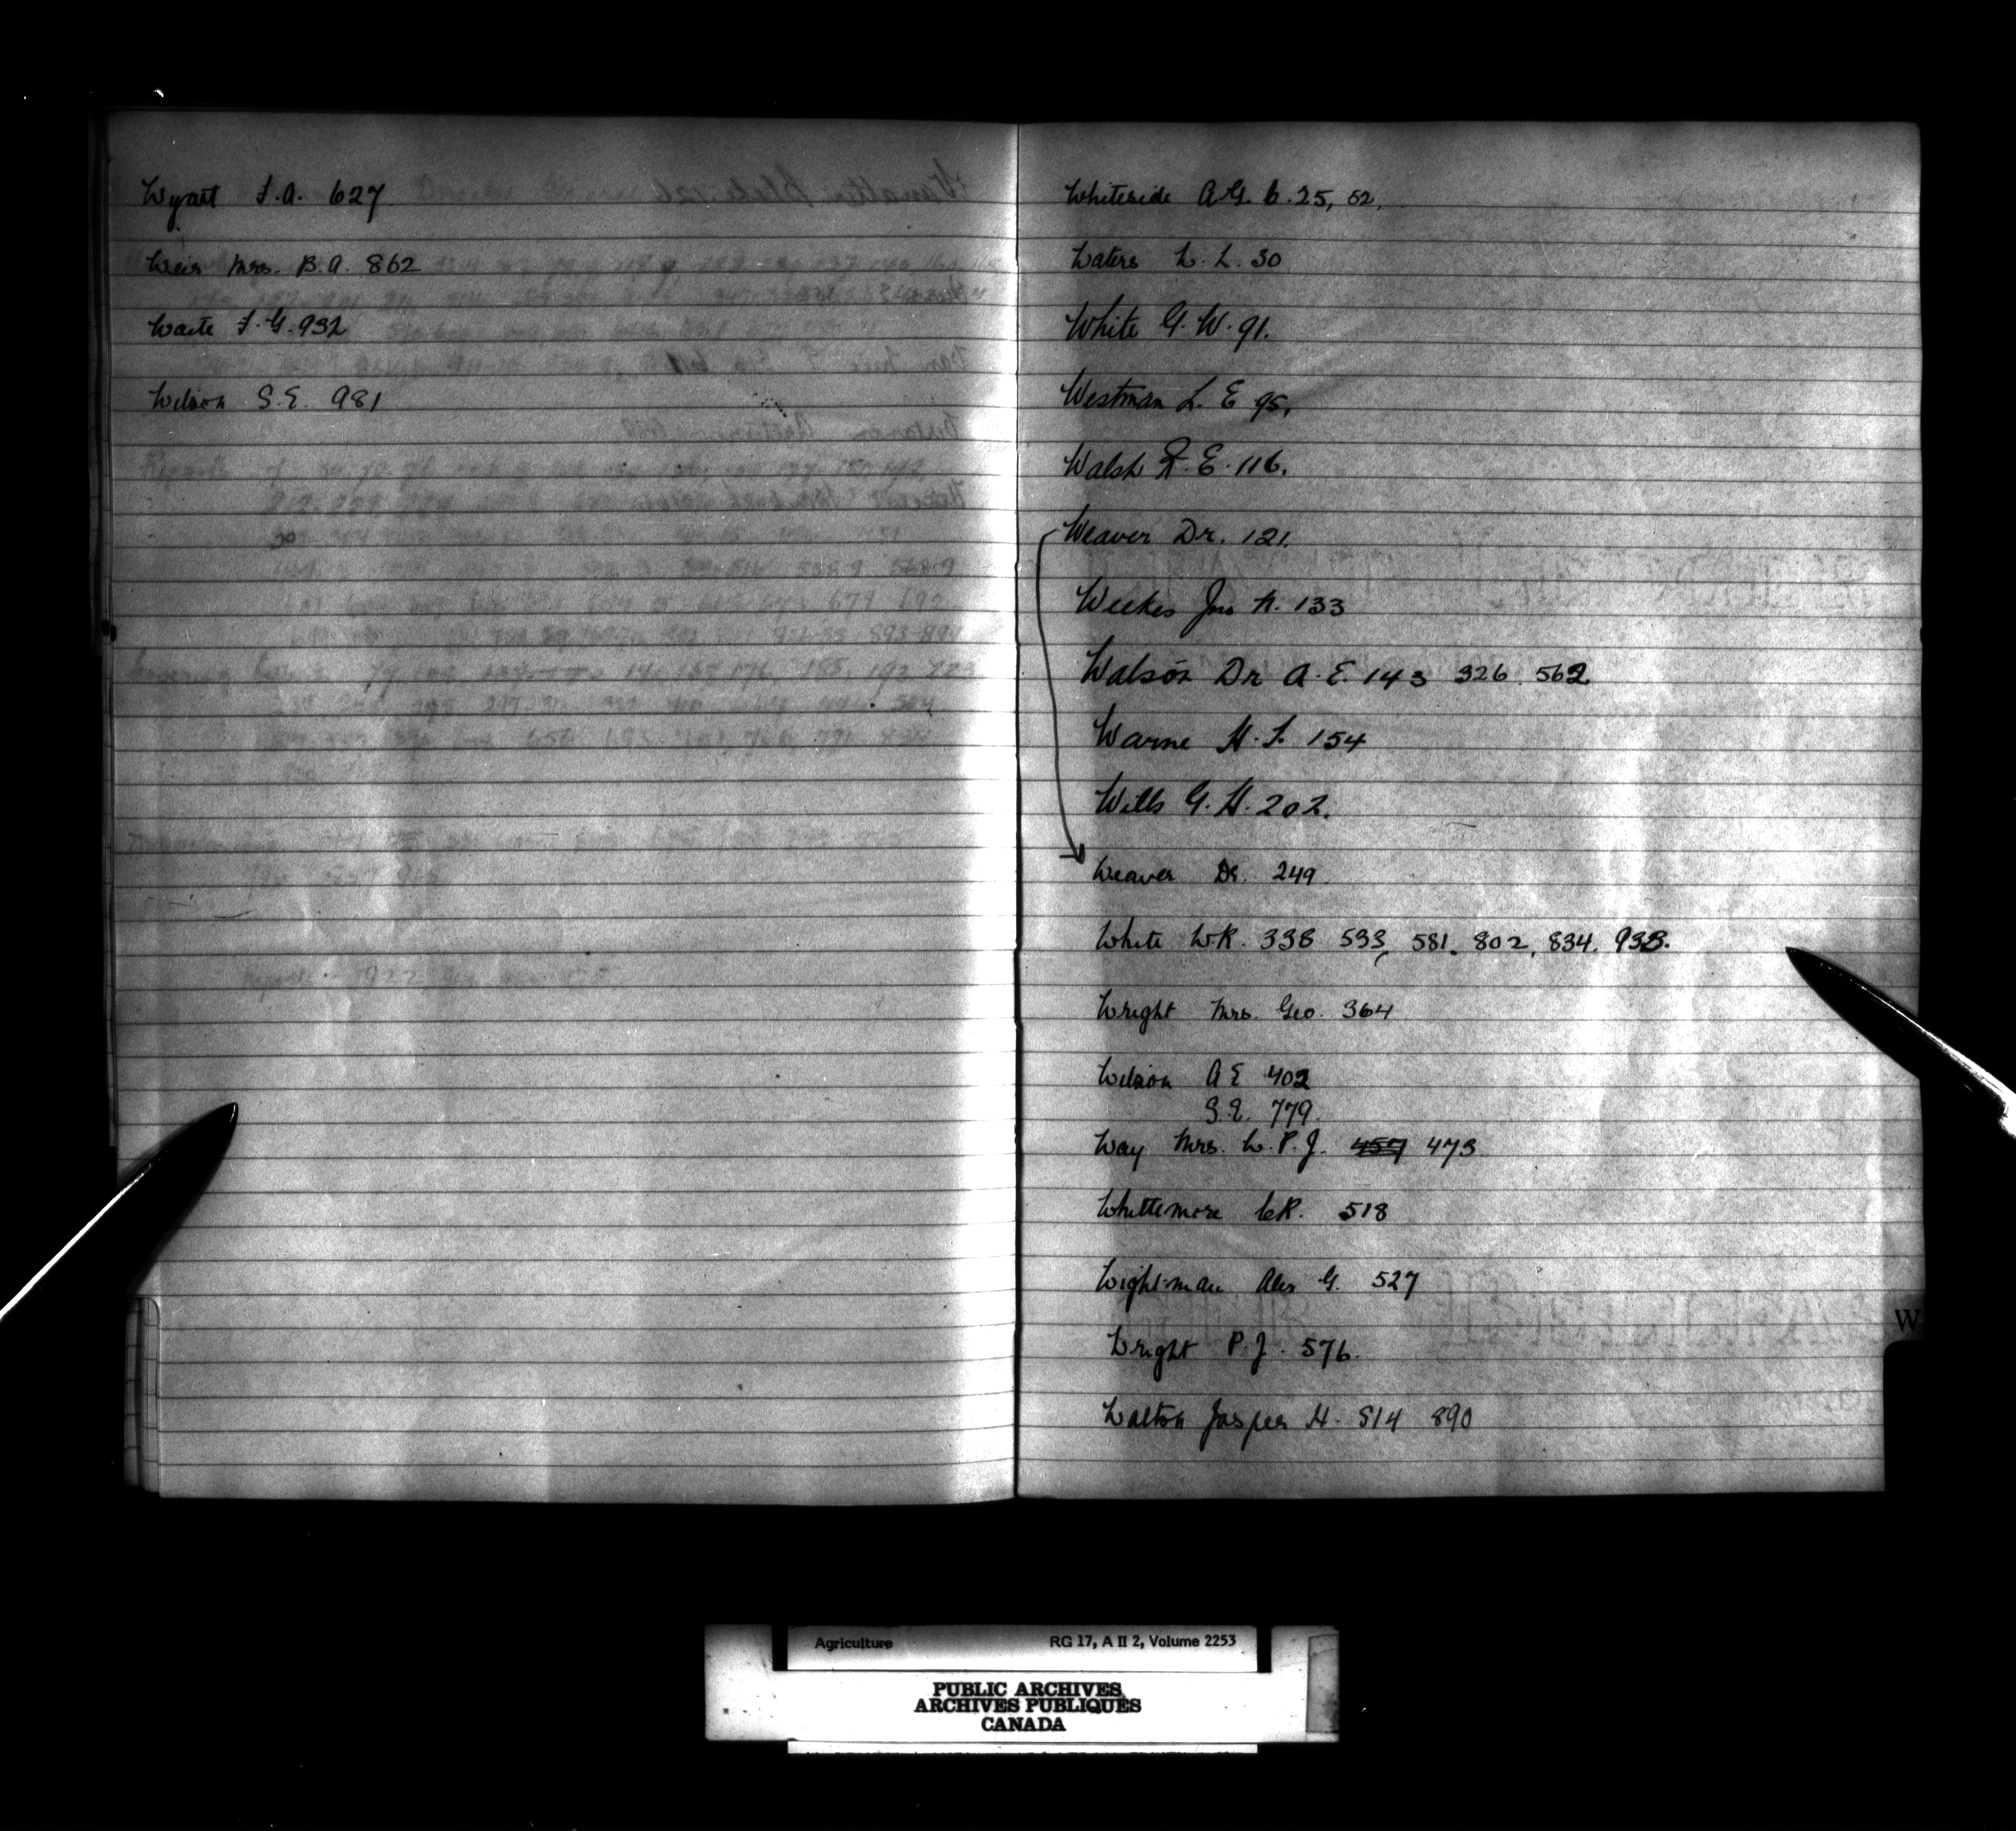 Wyatt F.A. 627.
Weir Mrs. B.A. 862
Waite F.G. 932
Wilson S.E. 981
Whiteside A.G. 6. 25, 52,
Waters W. L. 30
White G. W. 91.
Westman L. E 95,
Walsh F. E. 116.
Weaver Dr. 121.
Weekes Jno N. 133
Watson Dr A. E. 143 326 562
Warne H. F. 154
Wills G. H. 202.
Weaver Dr. 249
White W.R. 338 533, 581, 802, 834. 933.
Wright Mrs. Geo. 364
Wilson A E 402
S.E. 779
Way Mrs. W. P. J. 457 473
Whittemore C.R. 518
Wightman Alex G. 527
W
Wright P. J. 576.
Walton Jasper H. 814 890
Agriculture RG 17, A II 2, Volume 2253
PUBLIC ARCHIVES
ARCHIVES PUBLIQUES
CANADA